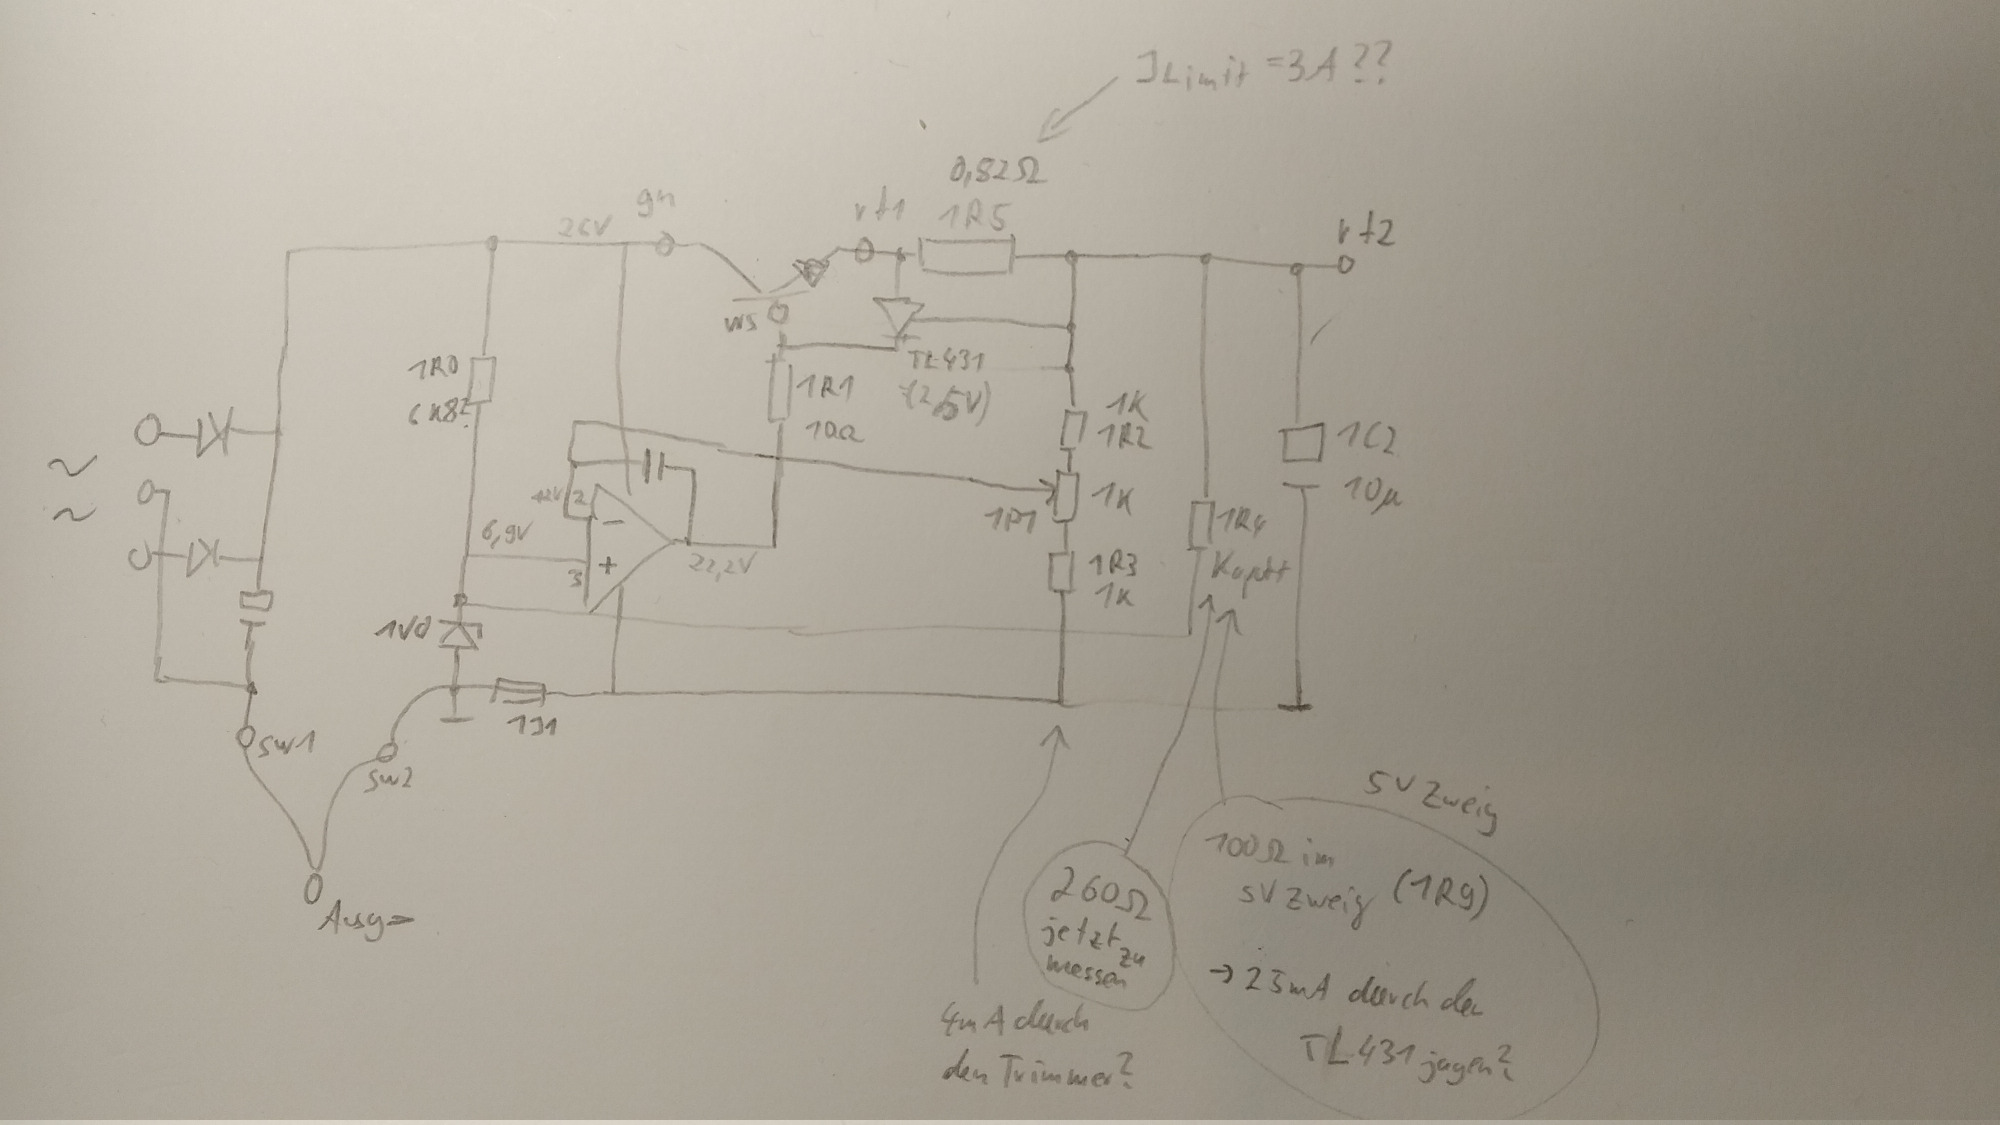 JLimit = 3A??
0,82Ω
1R5
gn
rt1
rt2
26V
ws
TL431
(2,5V)
1R0
6K8?
1R1
10Ω
1K
1R2
1K
1P1
1R3
1K
1R4
Kaputt
1C2
10µ
2
6,9V
3
22,2V
1V0
1J1
sw1
sw2
Ausg
5V Zweig
100Ω im
5V Zweig (1R9)
→ 25mA durch den
TL431 jagen?
260Ω
jetzt zu
messen
4mA durch
den Trimmer?